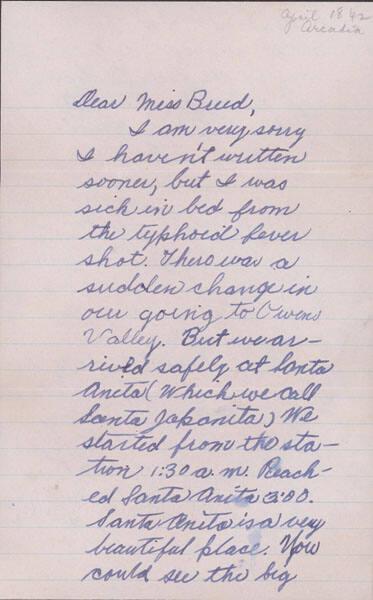 April 18 '42
Arcadia
Dear Miss Breed,
I am very sorry
I haven't written
sooner, but I was
sick in bed from
the typhoid fever
shot. There was a
sudden change in
our going to Owens
Valley. But we ar-
rived safely at Santa
Anita (Which we call
Santa Japanita) We
started from the sta-
tion 1:30 a.m. Reach-
ed Santa Anita 3:00.
Santa Anita is a very
beautiful place. You
could see the big